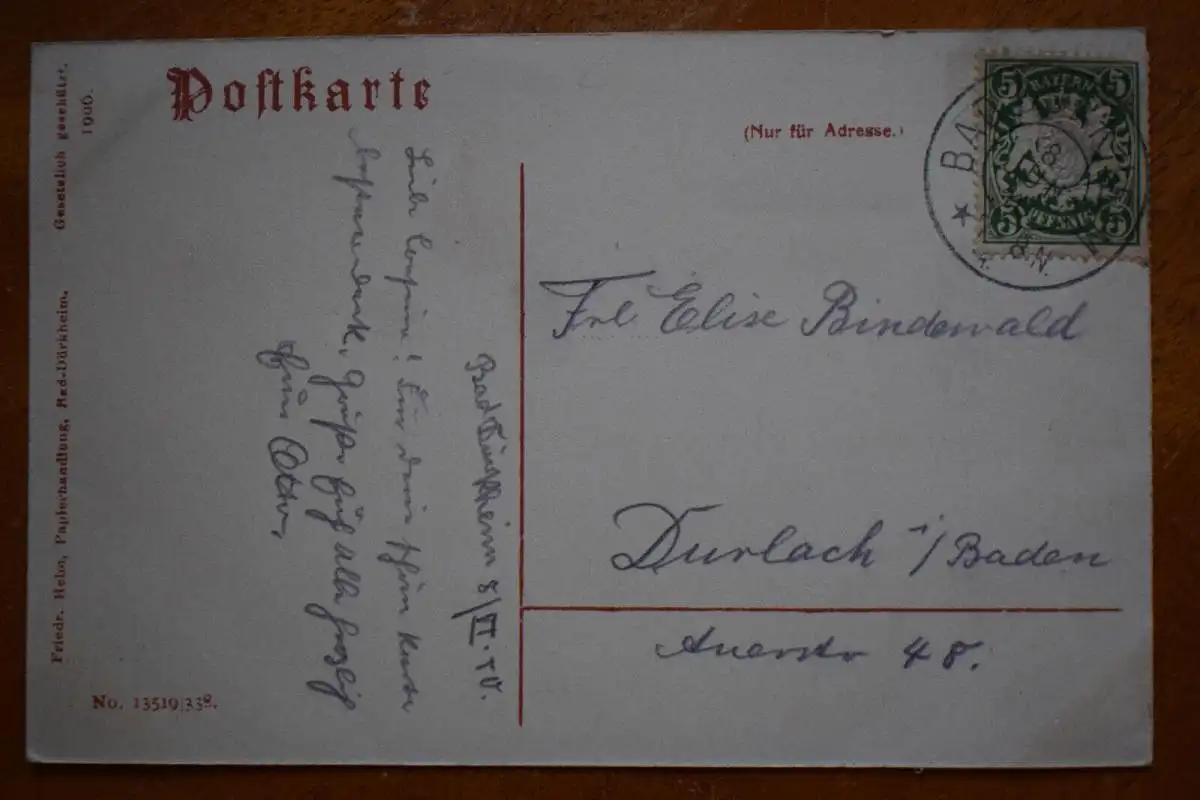 Postkarte
(Nur für Adresse.)
5 BAYERN 5
5 PFENNIG 5
8
N.
Frl Elise Bindewald
Durlach i/Baden
Auerstr 48.
Bad Dürkheim 8/VI.
Liebe Cousine! Für deine schöne Karte
besten Dank. Grüße Euch alle herzlich
Otto.
Gesetzlich geschützt.
1906.
Friedr. Helm, Papierhandlung, Bad-Dürkheim.
No. 13519/338.